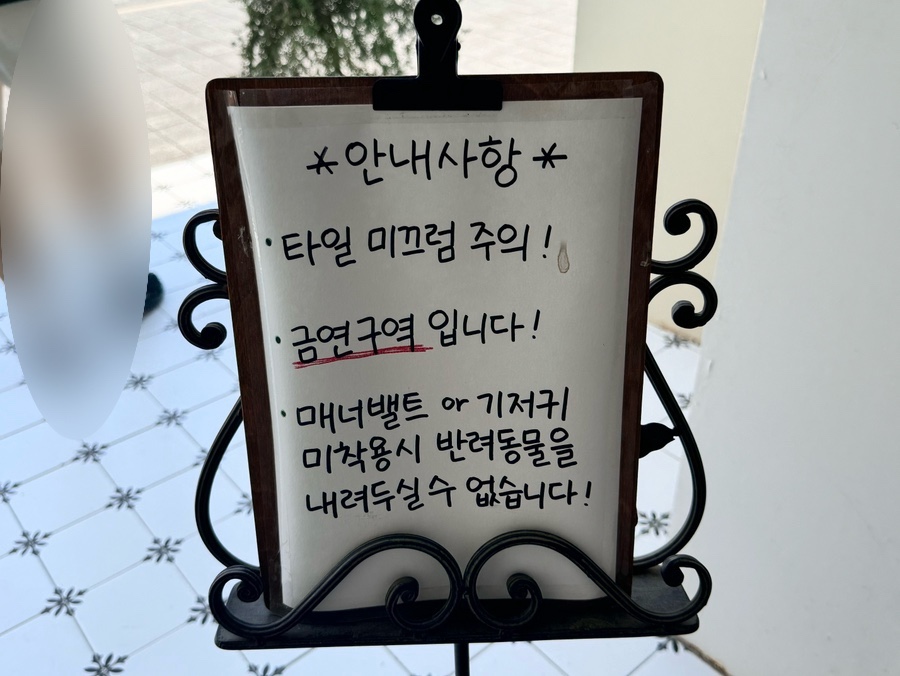 *안내사항*
· 타일 미끄럼 주의!
· 금연구역 입니다!
· 매너밸트 or 기저귀
미착용시 반려동물을
내려두실수 없습니다!